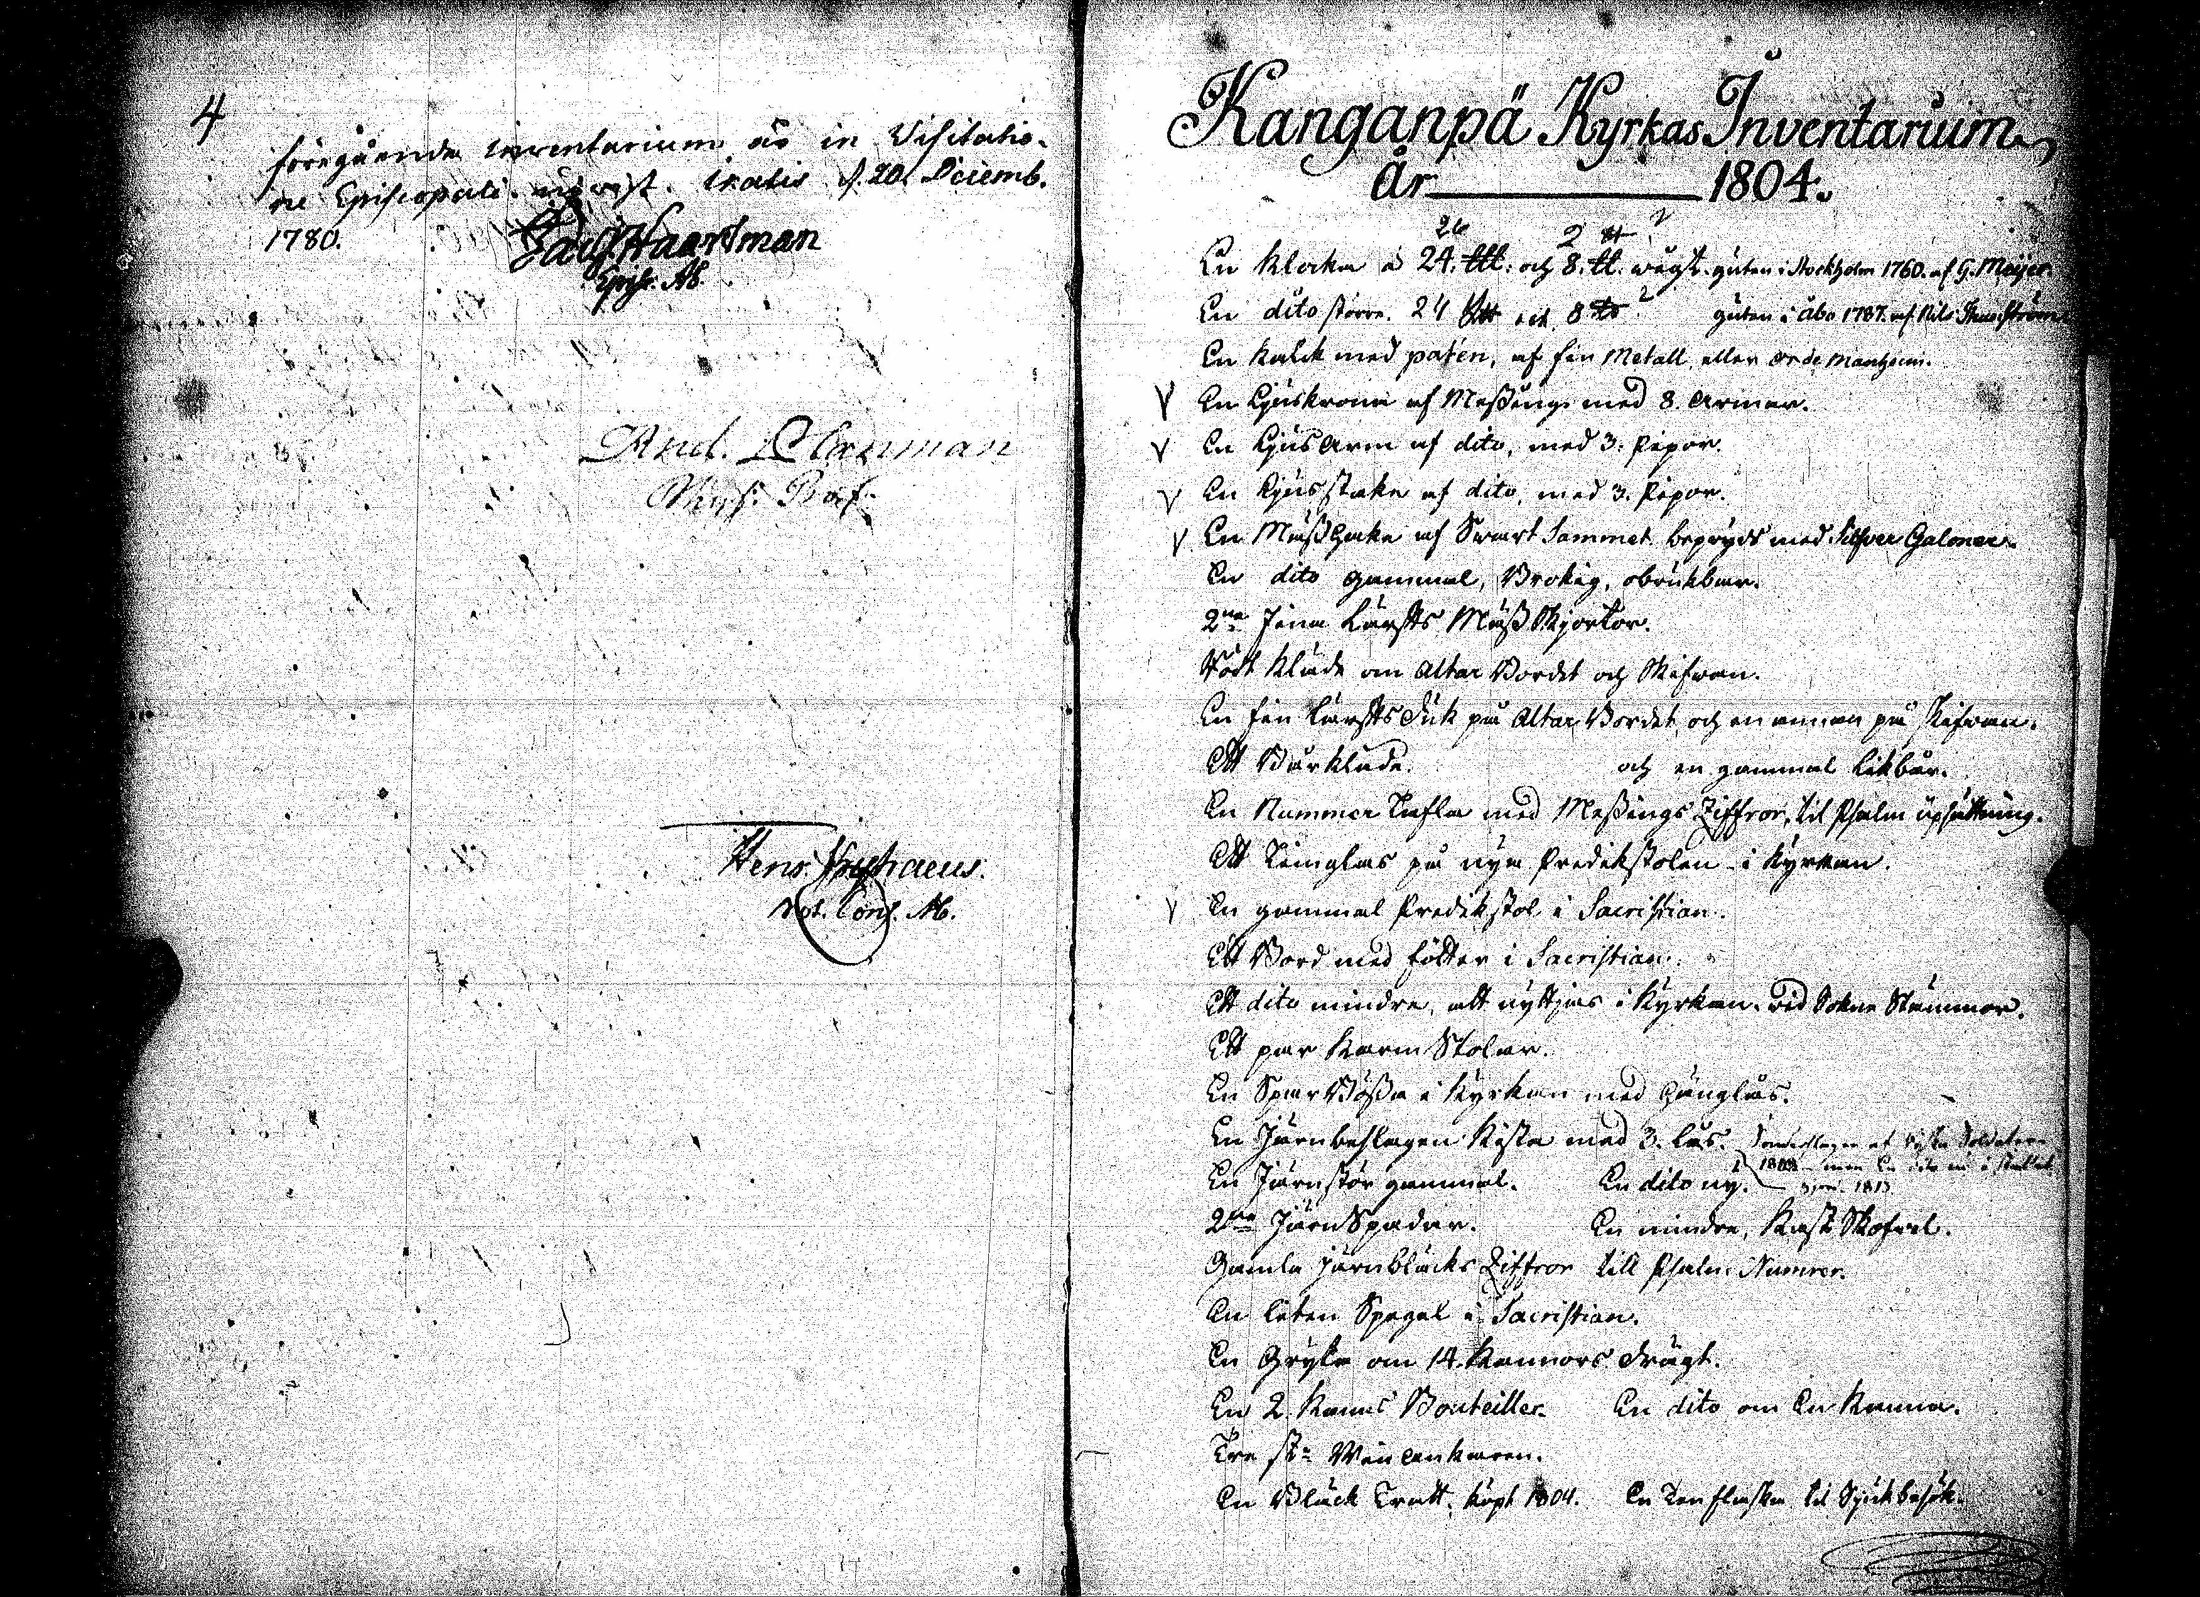 4
föregående Inventarium är in Visitatio-
ne Episcopali upvist. Ikalis d. 20. Decemb.
1780.
Haartman
Episc. Ab.
And. Planman
Henr.
Not. Cons. Ab.
Kanganpä Kyrkas Inventarium
År 1804.
26 2
En Klocka à 24. och 8. wägt. guten i Stockholm 1760. af G. Meijer.
En dito större. 24 och 8 guten i Åbo 1787. af Nils
En Kalck med patén, af fin Metall eller
V En Ljuskrona af Meßing med 8. Armar.
V En Ljus Arm af dito, med 3. Pipor.
V En Ljusstake af dito, med 3. Pipor.
V En Mäß Hake af Swart Sammet beprydd med Silfver Galoner.
En dito gammal, Brokig, obrukbar.
2ne fina Lärfts Mäß Skjortor.
Rödt Kläde om Altar Bordet och Skifwan.
En fin Lärfts Duk på Altar Bordet, och en annan på Skifwan.
Ett Bårkläde. och en gammal Likbår.
En Nummer Tafla med Meßings Ziffror, til Psalm upsättning.
Ett Timglas på nya Predikstolen i Kyrkan.
V En gammal Predikstol i Sacristian.
Ett Bord med fötter i Sacristian.
Ett dito mindre, att nyttjas i Kyrkan vid Sokne Stämmor.
Ett par Karm Stolar.
En Spar Bößa i Kyrkan med Hänglås.
En Järnbeslagen Kista med 3. lås. Sönderslagen af Ryska Soldater
1808 men En dito ny i stället
1813
En Järnstör gammal. En dito ny.
2ne Järn Spadar. En mindre, Kast Skofwel.
Gamla Järnbläcks Ziffror till Psalm Numrer.
En liten Spegel i Sacristian.
En Gryta om 14. Kannors drägt.
En 2. Kanns Bouteiller. En dito om En Kanna.
Tre st: Win ankaren.
En Bläck Tratt, köpt 1804. En Ten flaska til Sjukbesök.